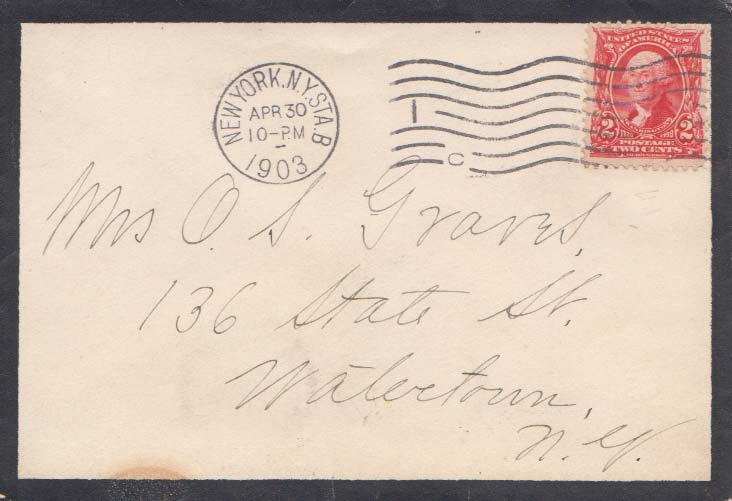 NEW YORK, N.Y. STA. B
APR 30
10-PM
1903
1
C
UNITED STATES
OF AMERICA
2 2
POSTAGE
TWO CENTS
Mrs O. S. Graves,
136 State St.
Watertown,
N. Y.